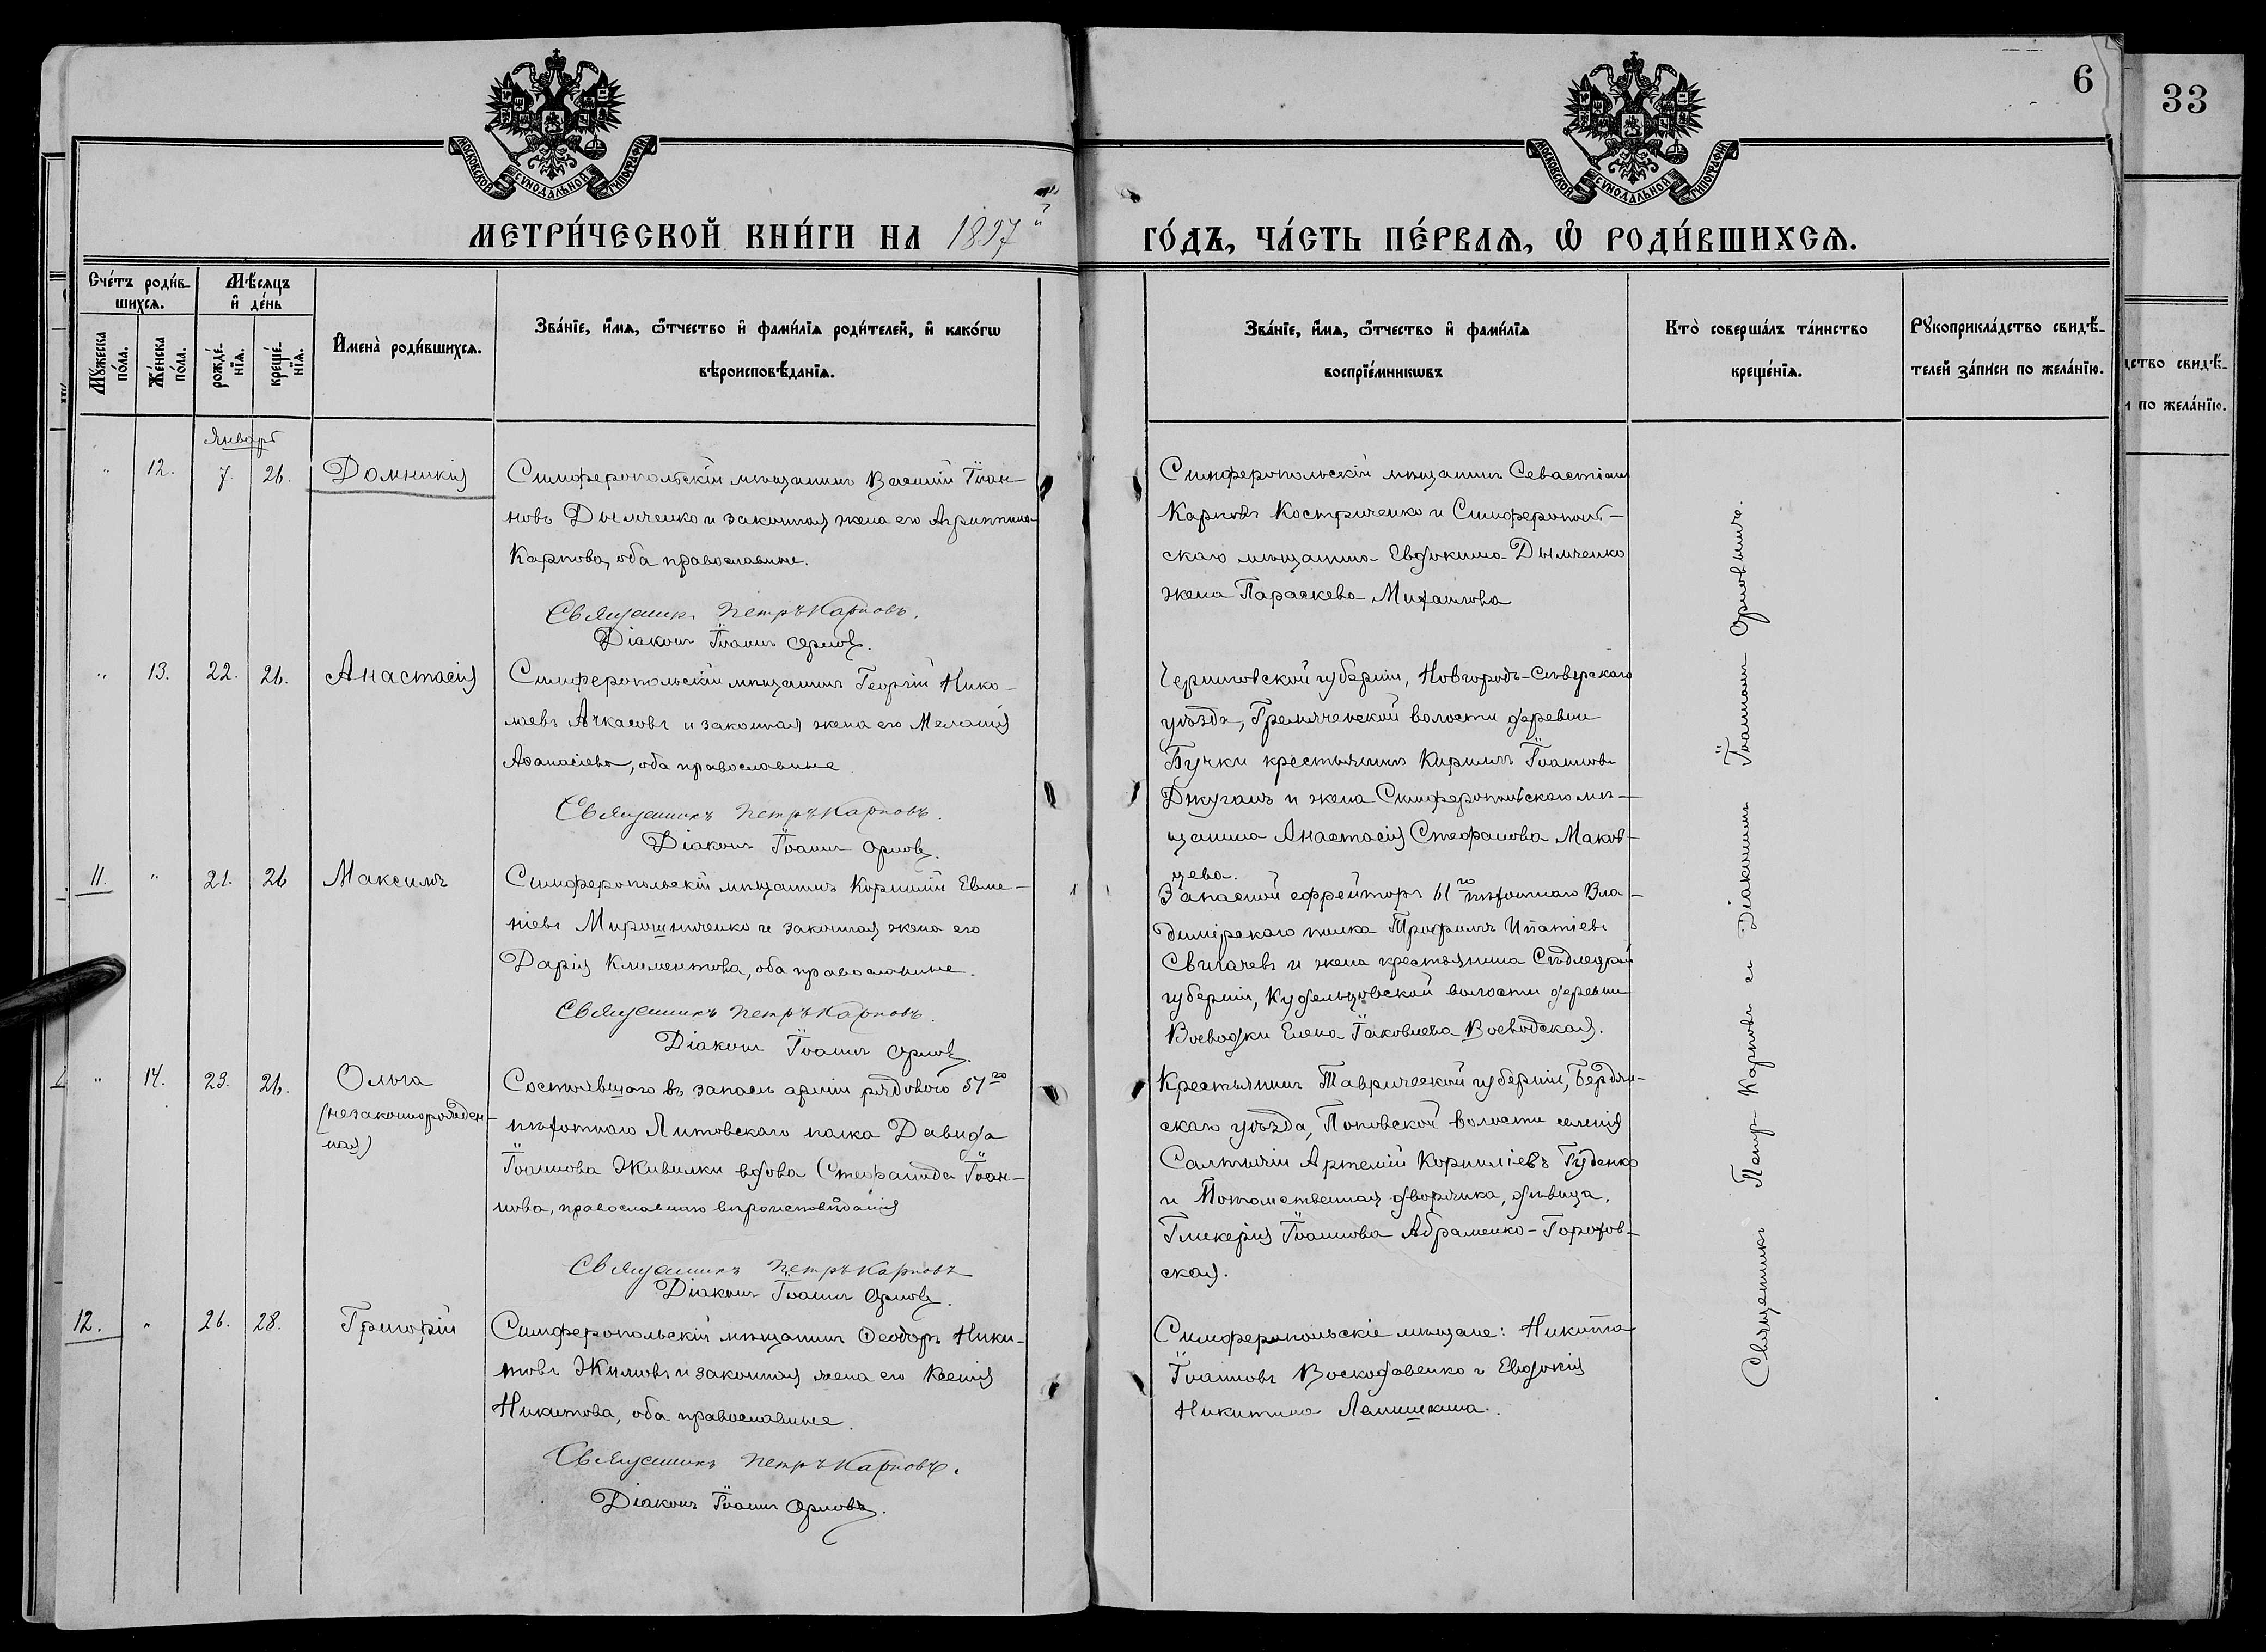 6
33
МОСКОВСКОЙ СУНОДАЛЬНОЙ ТИПОГРАФІИ
МОСКОВСКОЙ СУНОДАЛЬНОЙ ТИПОГРАФІИ
МЕТРИ́ЧЕСКОЙ КНИ́ГИ НА 1897й
ГО́ДЪ, ЧА́СТЬ ПЕ́РВАѦ, Ѽ РОДИ́ВШИХСѦ.
Сче́тъ роди́в-
шихсѧ.
Мꙋ́жеска по́ла.
Же́нска по́ла.
Мѣ́сѧцъ
и҆ де́нь
рожде́-
нїѧ.
креще́-
нїѧ.
И҆мена̀ роди́вшихсѧ.
Зва́нїе, и҆́мѧ, ѻ҆́тчество и҆ фами́лїѧ роди́телей, и҆ како́гѡ
вѣроисповѣ́данїѧ.
Зва́нїе, и҆́мѧ, ѻ҆́тчество и҆ фами́лїѧ
воспрїе́мникѡвъ
Кто̀ соверша́лъ та́инство
креще́нїѧ.
Рꙋкоприкла́дство свидѣ́-
телей за́писи по жела́нїю.
дство свидѣ́-
и по жела́нїю.
Январь
" 12. 7. 26. Домникія
Симферопольскій мѣщанинъ Василій Іоан-
новъ Дымченко и законная жена его Агриппина
Карпова, оба православные.
Священникъ Петръ Карповъ.
Діаконъ Іоаннъ Орловъ.
Симферопольскій мѣщанинъ Севастіанъ
Карповъ Костриченко и Симферополь-
скаго мѣщанина Евдокима Дымченко
жена Параскева Михаилова
" 13. 22. 26. Анастасія
Симферопольскій мѣщанинъ Георгій Нико-
лаевъ Ачкасовъ и законная жена его Меланія
Аѳанасіева, оба православные.
Священникъ Петръ Карповъ.
Діаконъ Іоаннъ Орловъ.
Черниговской губерніи, Новгородъ-Сѣверскаго
уѣзда, Гремяченской волости деревни
Бучки крестьянинъ Кириллъ Іоанновъ
Джуганъ и жена Симферопольскаго мѣ-
щанина Анастасія Стефанова Маков-
цева.
11. " 21. 26 Максимъ
Симферопольскій мѣщанинъ Корнилій Евме-
ніевъ Мирошниченко и законная жена его
Дарія Климентова, оба православные.
Священникъ Петръ Карповъ.
Діаконъ Іоаннъ Орловъ.
Запасной ефрейторъ 61го пѣхотнаго Вла-
димірскаго полка Трофимъ Ипатіевъ
Свигачевъ и жена крестьянина Сѣдлецкой
губерніи, волости деревни
Воеводки Елена Іаковлева Воеводская.
" 14. 23. 26. Ольга
(незаконнорожден-
ная)
Состоявшаго въ запасѣ арміи рядового 57го
пѣхотнаго Литовскаго полка Давида
Іоаннова Живилки вдова Стефанида Іоан-
нова, православнаго вѣроисповѣданія
Священникъ Петръ Карповъ
Діаконъ Іоаннъ Орловъ.
Крестьянинъ Таврической губерніи, Бердян-
скаго уѣзда, Поповской волости селенія
Салтычіи Артемій Корниліевъ Гуденко
и Потомственная дворянка, дѣвица,
Гликерія Іоаннова Абраменко-Горохов-
ская.
12. " 26. 28. Григорій
Симферопольскій мѣщанинъ Ѳеодоръ Ники-
товъ Жиловъ и законная жена его Ксенія
Никитова, оба православные.
Священникъ Петръ Карповъ.
Діаконъ Іоаннъ Орловъ.
Симферопольскіе мѣщане: Никита
Іоанновъ Воскодавенко и Евдокія
Никитина Лемишкина.
Священникъ Петръ Карповъ съ Діакономъ Іоанномъ Орловымъ.